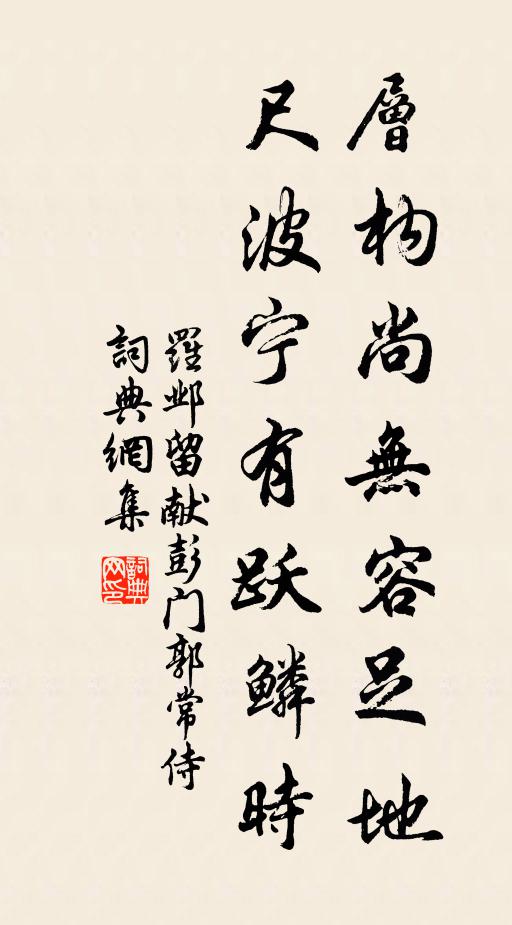 層构尚無容足地
尺波宁有跃鱗時
羅邺留献彭门郭常侍
詞典網集
詞典网印